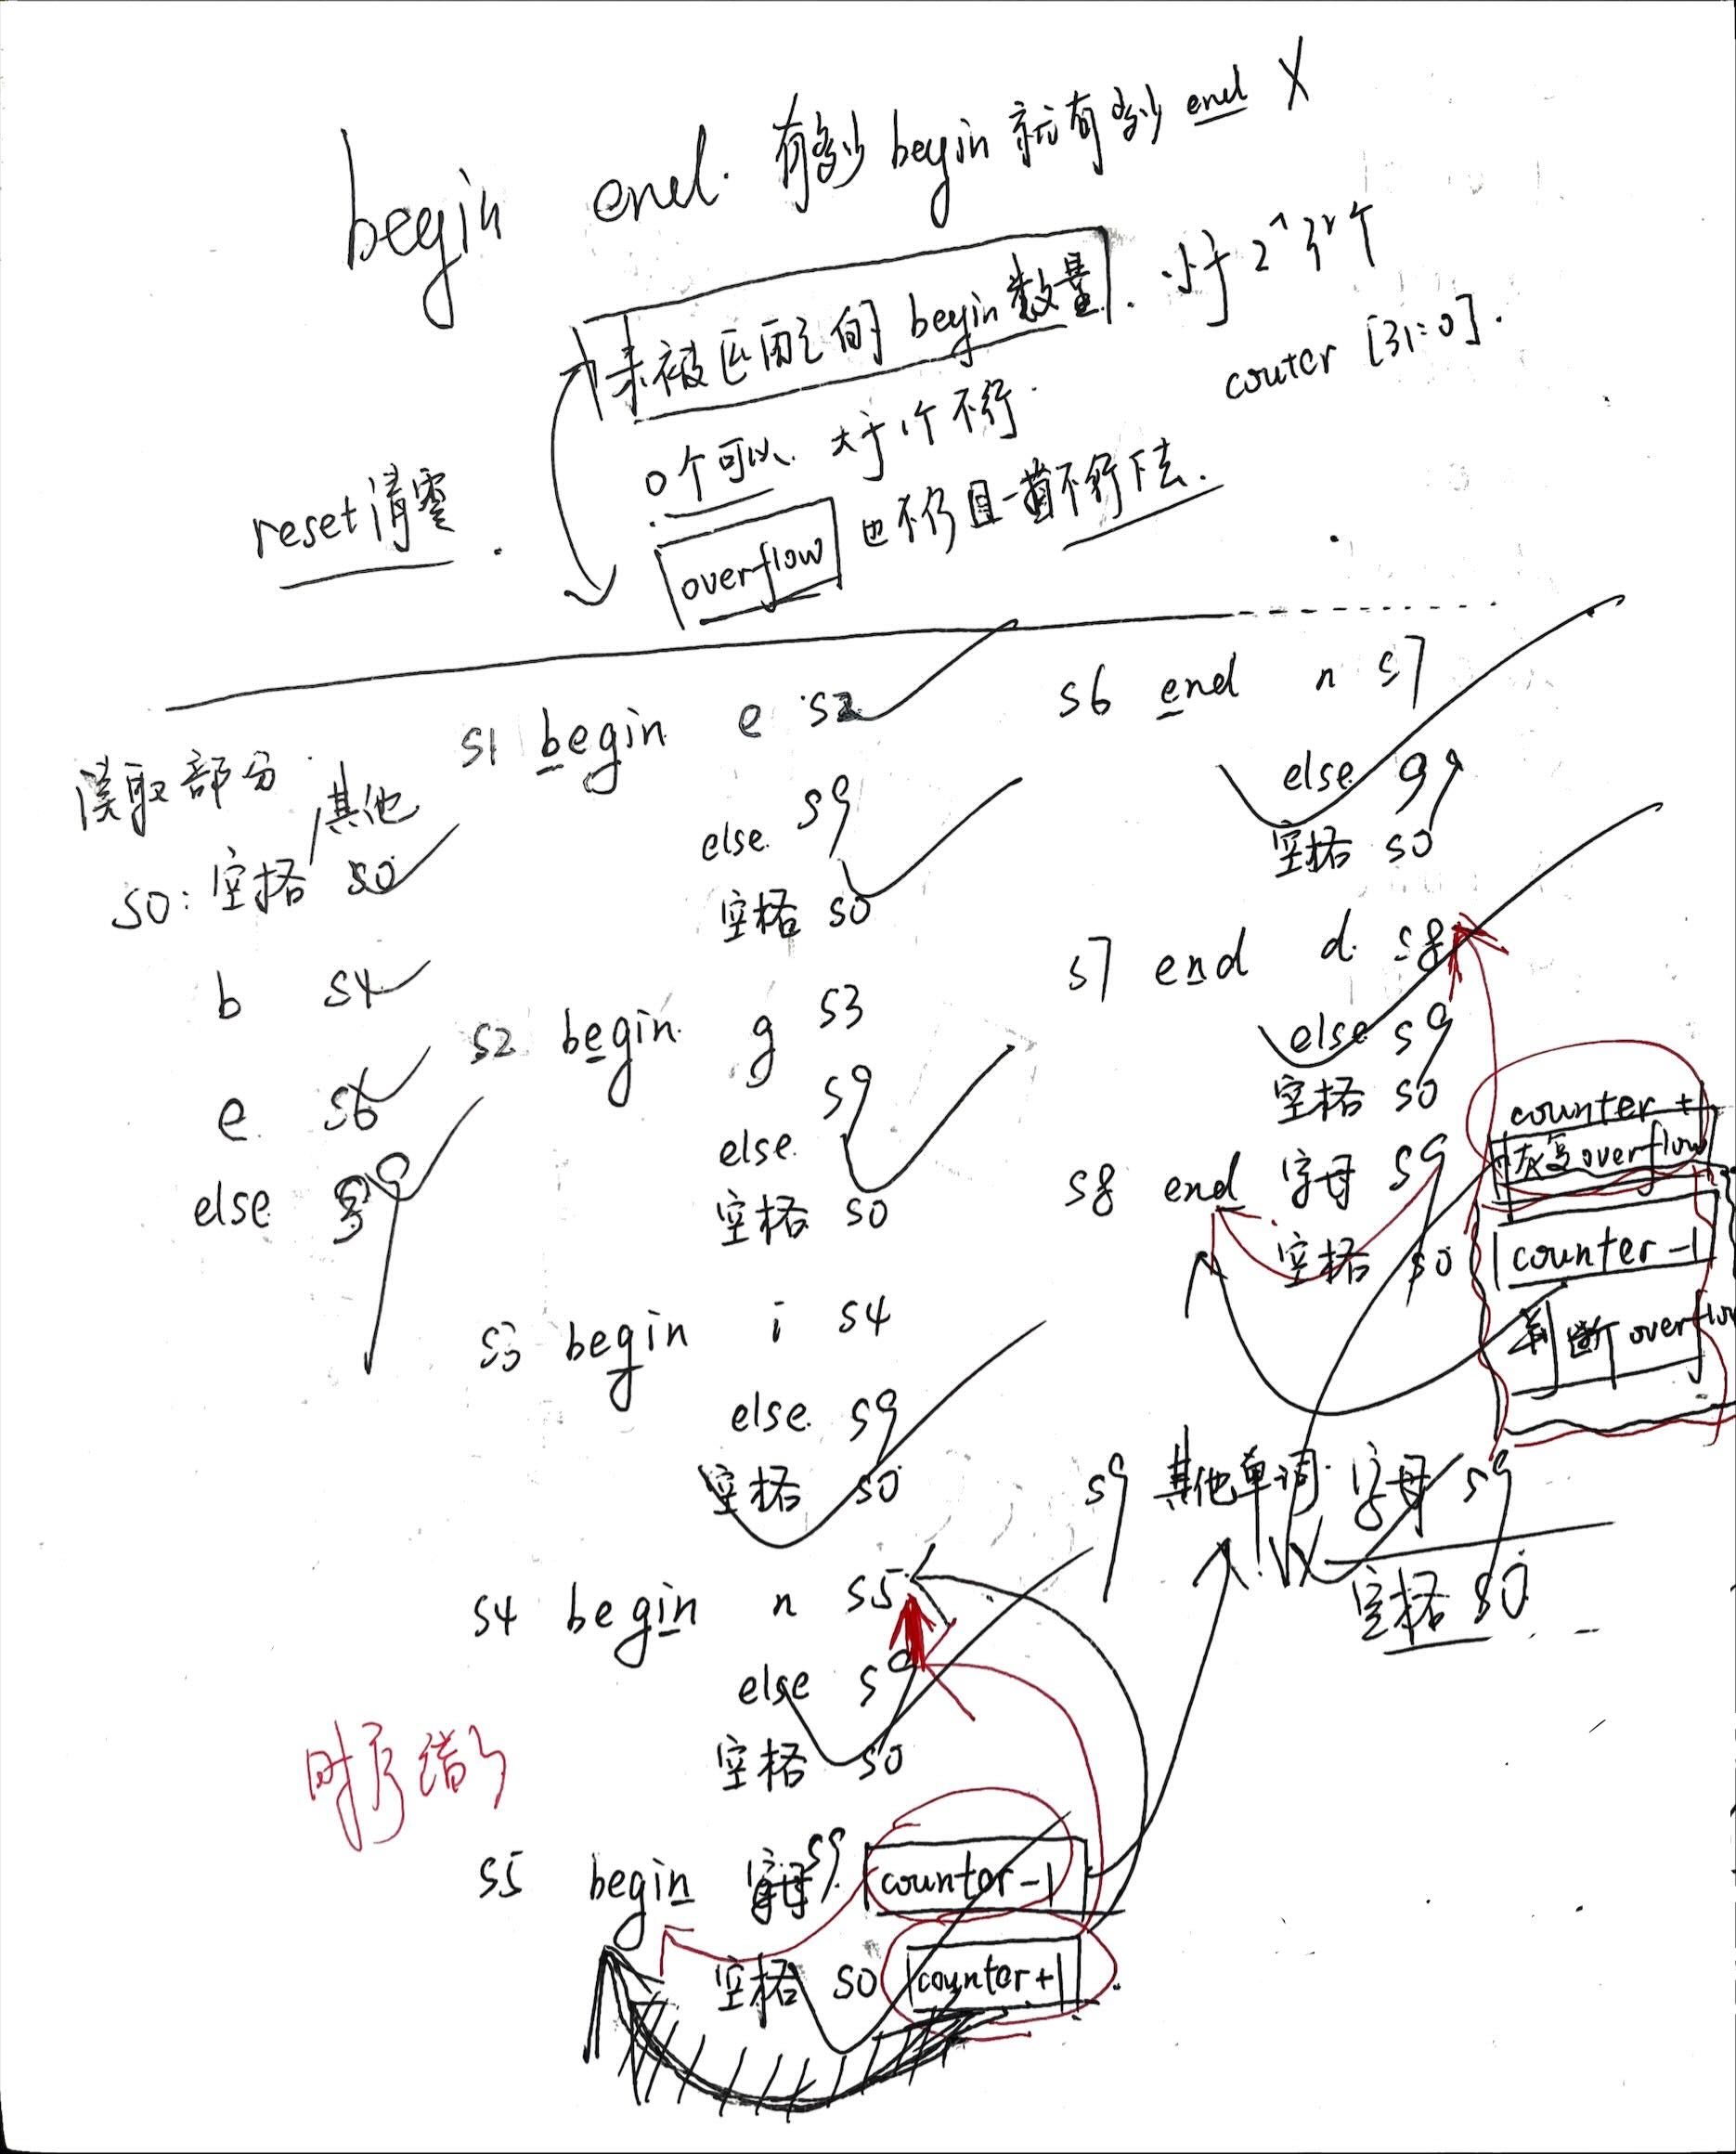 begin end. 有多少 begin 就有多少 end X
未被匹配的 begin数量. 小于 2^32个
couter [31:0].
0个可以. 大于1个不行.
reset清零.
overflow 也不行且一直不行下去.
读取部分
s0: 空格/其他 s0
b s4
e s6
else s9
s1 begin e s2
else s9
空格 s0
s2 begin g s3
else s9
空格 s0
s3 begin i s4
else s9
空格 s0
s4 begin n s5
else s9
空格 s0
时序错了
s5 begin 字母 s9 counter-1
空格 s0 counter+1
s6 end n s7
else 9
空格 s0
s7 end d s8
else s9
空格 s0
s8 end 字母 s9
空格 s0
counter+
恢复overflow
counter-1
判断overflow
s9 其他单词 字母 s9
空格 s0